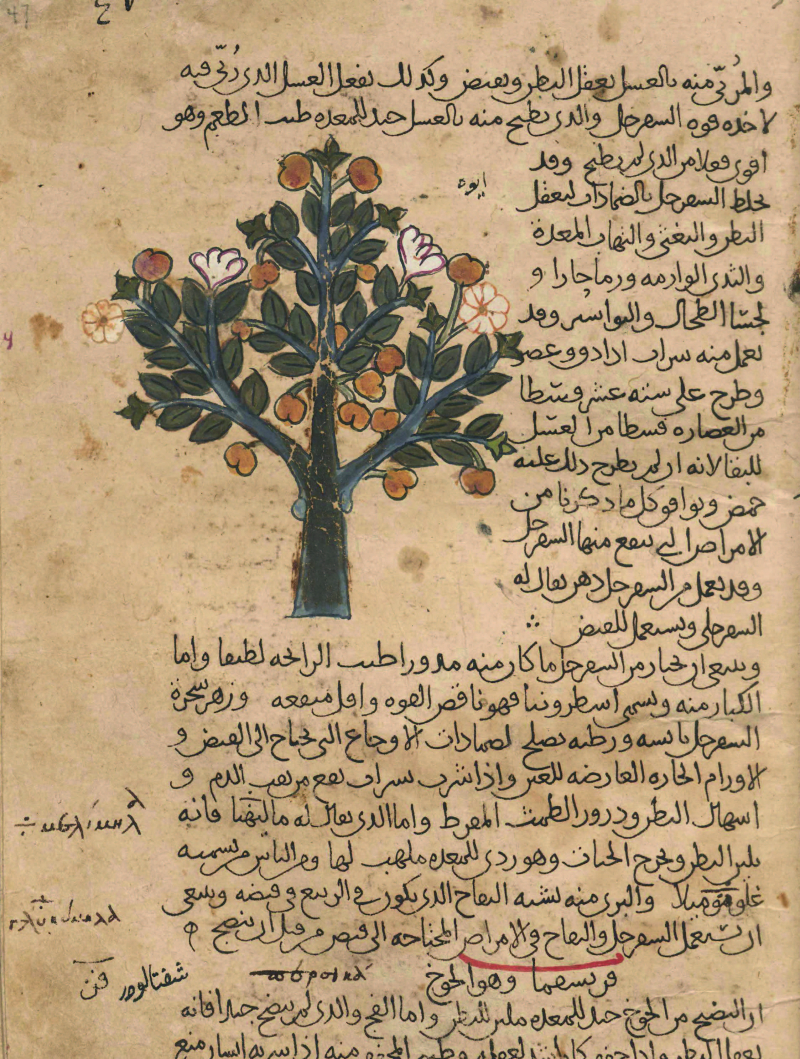 والمربّى منه بالعسل يعقل البطن ويقبض وكذلك يفعل العسل الذى رُبّى فيه
لاخذه قوه السفرجل والذى يطبخ منه بالعسل جيد للمعده طيب الطعم وهو
اقوى فعلا من الذى لم يطبخ وقد
يخلط السفرجل بالضمادات ليعقل
البطن والغثى والتهاب المعدة
والثدى الوارمه ورما حارا و
لجسا الطحال والبواسير وقد
يعمل منه شراب اذا دق وعصر
وطرح على سته عشر قسطا
من العصاره قسطا من العسل
للبقا لانه ان لم يطرح ذلك عليه
حمض ويوافق كل ما ذكرنا من
الامراض التى ينفع منها السفرجل
وقد يعمل من السفرجل دهن يقال له
السفرجلى ويستعمل للقبض
وينبغى ان يختار من السفرجل ما كان منه مدورا طيب الرائحه لطيفا واما
الكبار منه ويسمى اسطرونيا فهو ناقص القوه واقل منفعه وزهر شجرة
السفرجل يابسه ورطبه يصلح لضمادات الاوجاع التى تحتاج الى القبض و
الاورام الحاره العارضه للعين واذا شرب بشراب نفع من نفث الدم و
اسهال البطن ودرور الطمث المفرط واما الذى يقال له ماليمثا فانه
يلين البطن ويخرج الحيات وهو ردى للمعده ملهب لها ومن الناس من يسميه
غلوقوميلا والبرى منه يشبه التفاح الذى يكون فى الربيع فى قبضه وينبغى
ان يستعمل السفرجل والتفاح فى الامراض المحتاجه الى قبض من قبل ان ينضج
وهو الخوخ
شفتالودر
ان النضيج من الخوخ جيد للمعده ملين للبطن واما الفج والذى لم ينضج جيدا فانه